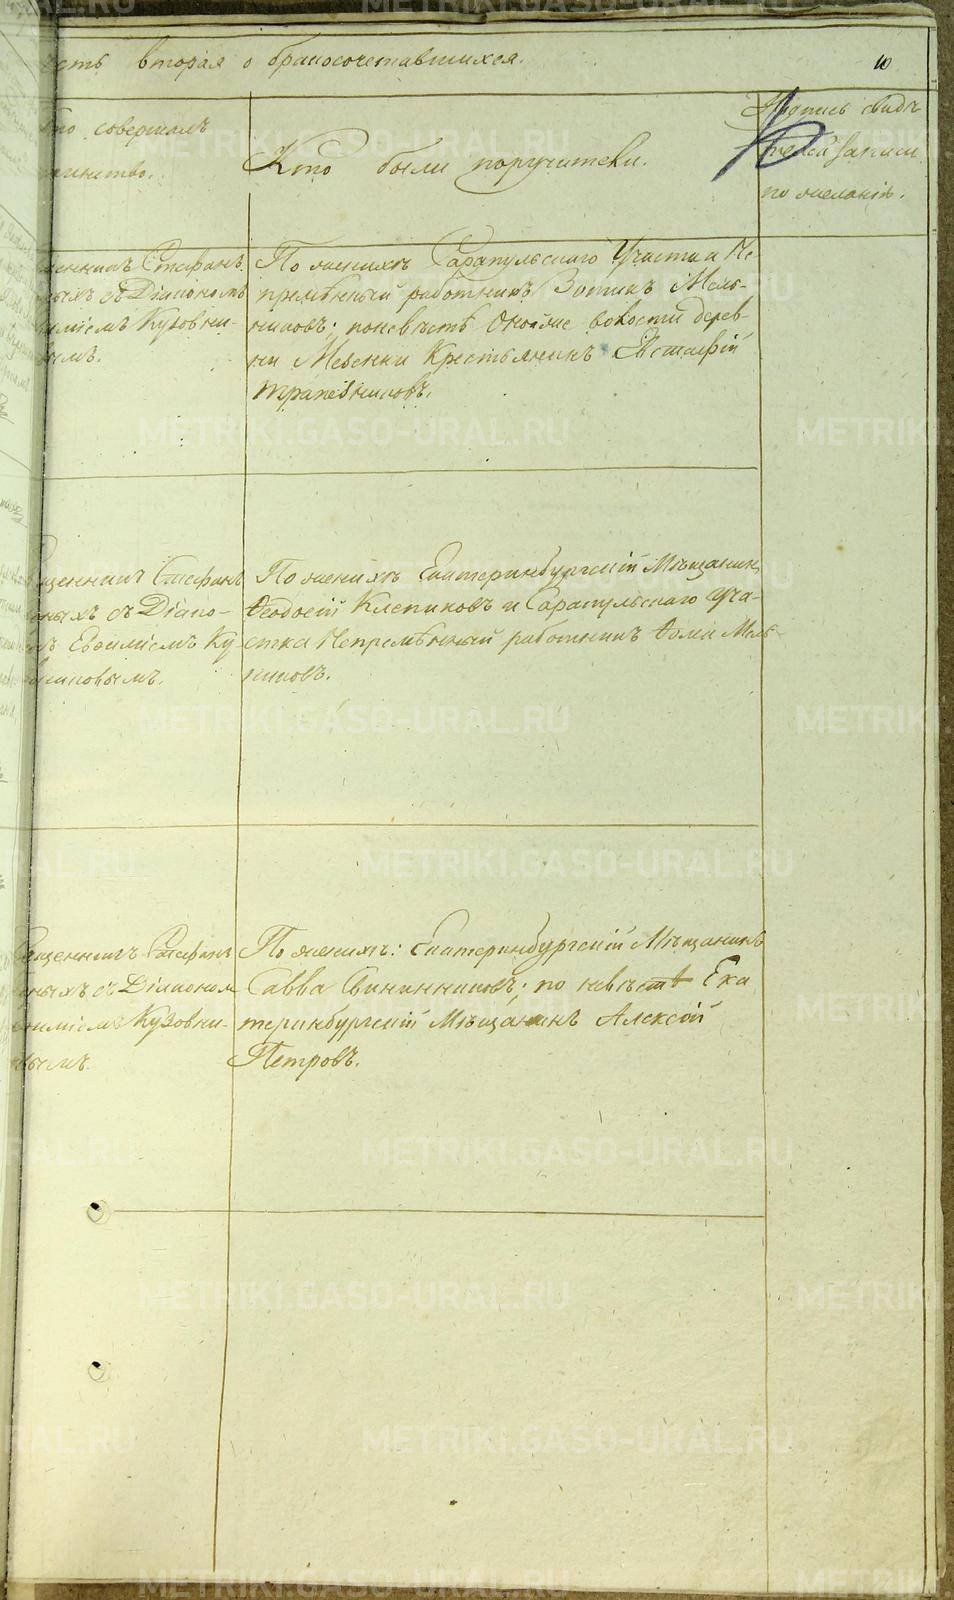 сть вторая о бракосочетавшихся.
10
то совершалъ
инство.
Кто были поручители.
Подпись свидѣ
телей записи
по желанію.
щенникъ Стефанъ
ныхъ съ Діакономъ
иміемъ Кузовни-
вымъ.
По женихѣ Сарапульскаго Участка Не-
премѣнный работникъ Зотикъ Мель-
никовъ; по невѣстѣ волости дерев-
ни Крестьянинъ Евстафій
Трапезниковъ.
щенникъ Стефанъ
ныхъ съ Діако-
ъ Евфиміемъ Ку-
никовымъ.
По женихѣ Екатеринбургскій Мѣщанинъ
Ѳеодосій Клепиковъ и Сарапульскаго Уча-
стка Непремѣнный работникъ Ѳома Мель-
никовъ.
щенникъ Стефанъ
ныхъ съ Діакономъ
иміемъ Кузовни-
вымъ.
По женихѣ: Екатеринбургскій Мѣщанинъ
Савва Свининниковъ; по невѣстѣ Ека
теринбургскій Мѣщанинъ Алексѣй
Петровъ.
METRIKI.GASO-URAL.RU